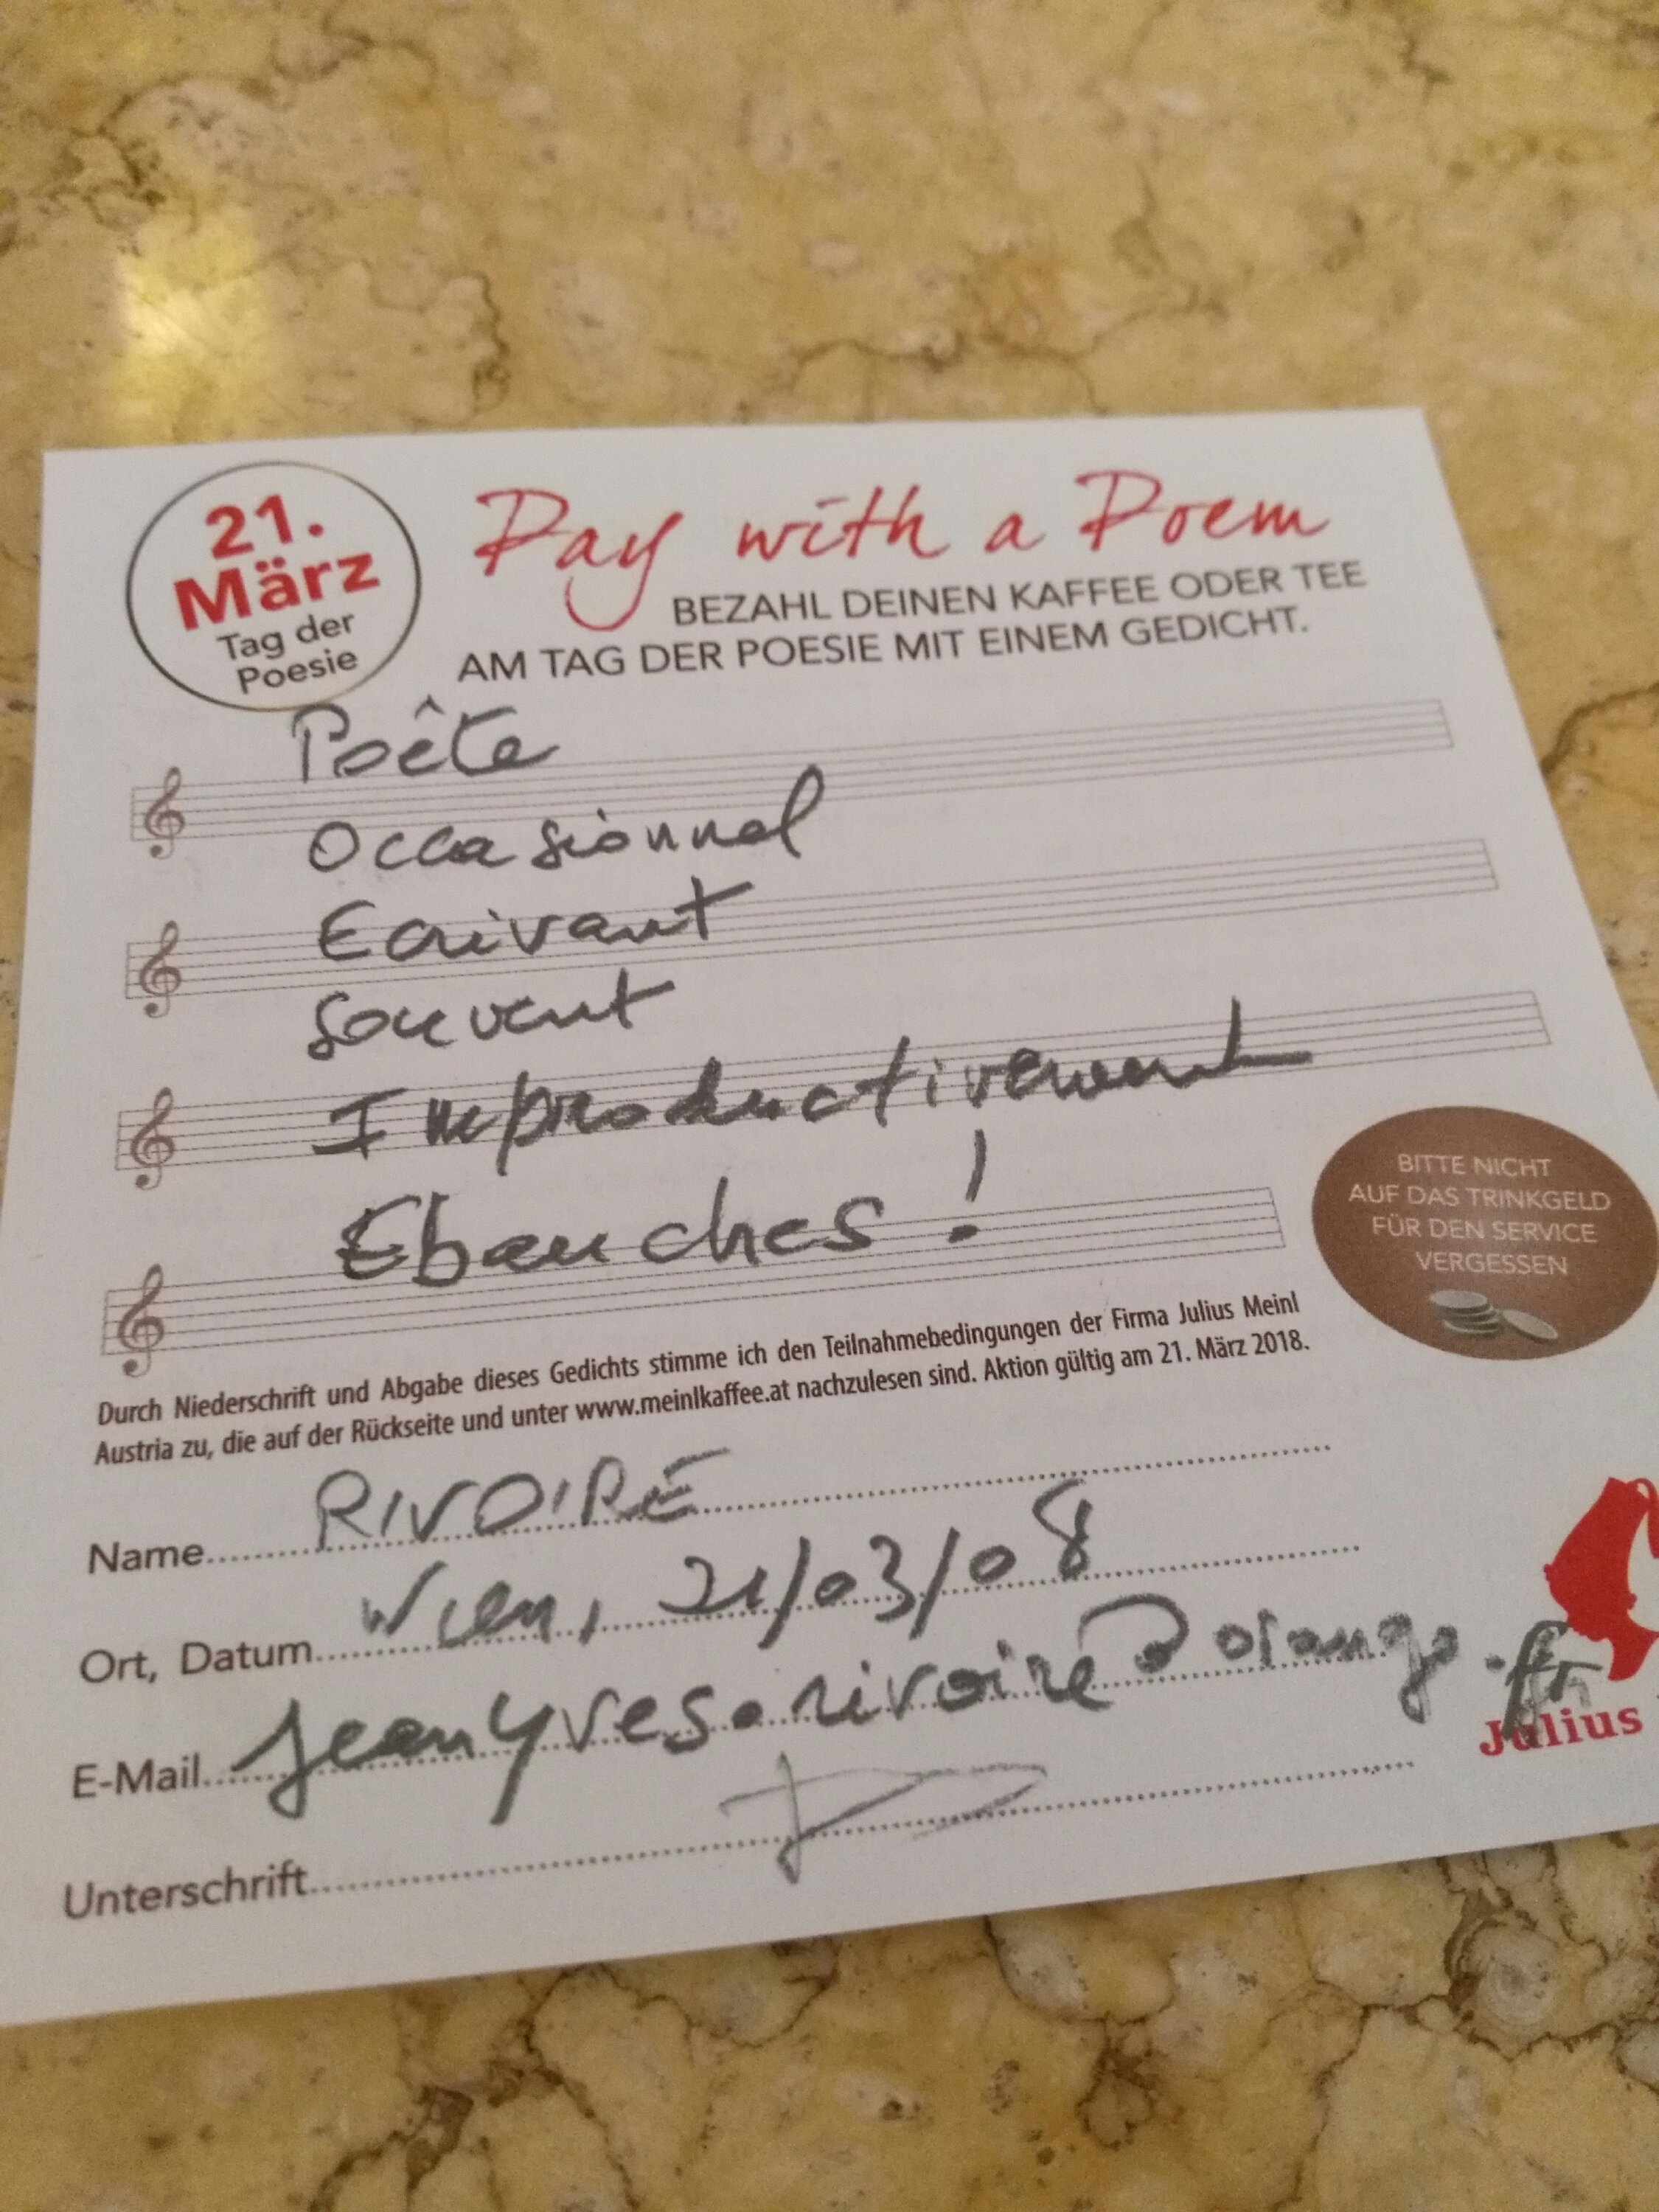 21.
März
Tag der
Poesie
Pay with a Poem
BEZAHL DEINEN KAFFEE ODER TEE
AM TAG DER POESIE MIT EINEM GEDICHT.
Poête
Occasionnel
Ecrivant
Souvent
Improductivement
Ebauches !
BITTE NICHT
AUF DAS TRINKGELD
FÜR DEN SERVICE
VERGESSEN
Durch Niederschrift und Abgabe dieses Gedichts stimme ich den Teilnahmebedingungen der Firma Julius Meinl
Austria zu, die auf der Rückseite und unter www.meinlkaffee.at nachzulesen sind. Aktion gültig am 21. März 2018.
Name RIVOIRE
Ort, Datum Wien, 21/03/08
E-Mail jeanyves.rivoire@orange.fr
Julius
Unterschrift